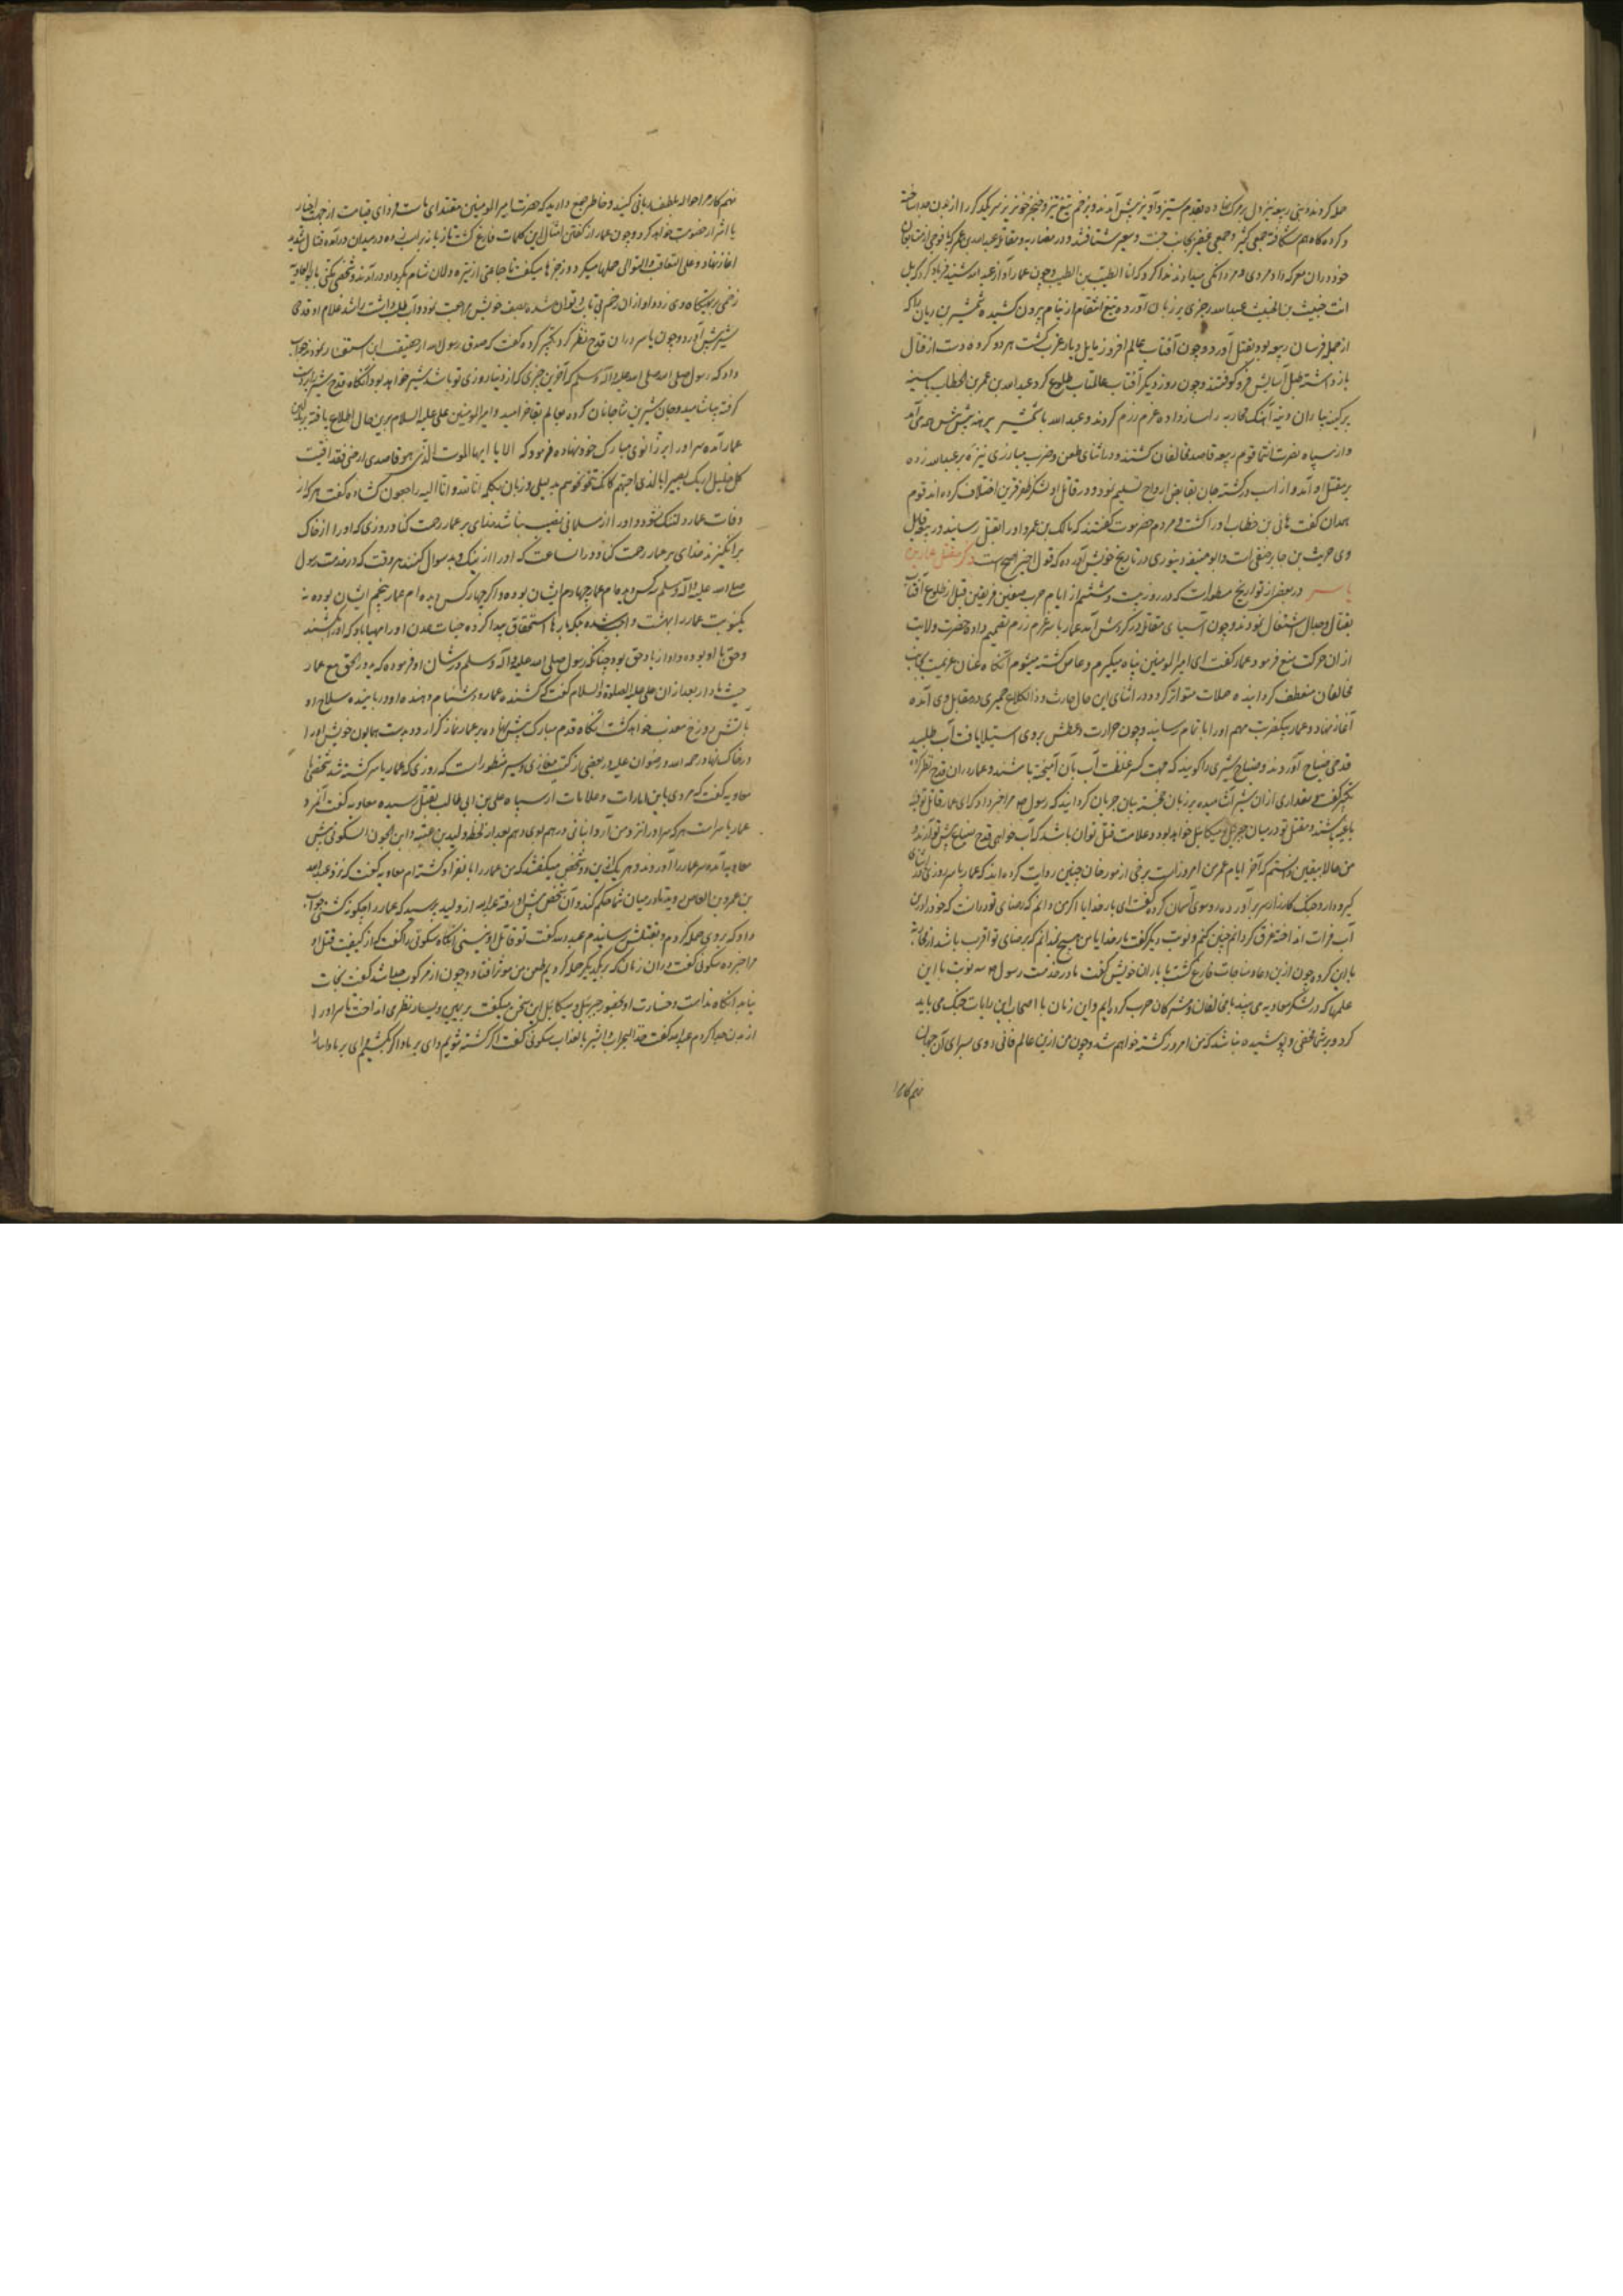 حمله کردند و بنی ربیعه نیز دل بر مرک نهاده بقدم ستیز و آویز پیش آمدند و بزخم تیغ تیز و خنجر خونریز سر یکدیکر را از بدن جدا ساخته
و کرده کاه هم شکافته جمعی کثیر و جمعی غفیر بجانب جنت و سعیر شتافتند و در مضاربه و مقاتله عبدالله بن عمر که با فوجی از متابعان
خود در آن معرکه داد مردی و مردانکی میداد ندا کرد که انا الطیب بن الطیب و چون عمار آواز عبدالله شنید فریاد کرد که بل
انت خبیث بن الخبیث عبدالله رجزی بر زبان آورده تیغ انتقام از نیام بیرون کشیده شمشیر بن ریان را که
از جمله فرسان ربیعه بود بقتل آورد و چون آفتاب عالم افروز مایل دیار غرب کشت هر دو کروه دست از قتال
باز داشته طبل آسایش فرو کوفتند و چون روز دیکر آفتاب عالمتاب طلوع کرد عبدالله بن عمر بن الخطاب با سینه
پر کینه یاران و تنه آهنک محاربه را ساز داده عزم رزم کردند و عبدالله با شمشیر برهنه پیش پیش صف می آمد
و از سپاه نصرت انتما قوم ربیعه قاصد مخالفان کشتند و در اثنای طعن و ضرب مبارزی نیزه بر عبدالله زده
بر مقتل او آمد و از اسب در کشته جان بقابض ارواح تسلیم نمود و در قاتل او لشکر ظفر قرین اختلاف کرده اند قوم
همدان کفت هانی بن خطاب او را کشت و مردم حضرموت کفتند که مالک بن عمرو او را بقتل رسانید و ربیعه قاتل
وی حریث بن جابر حنفی است و ابو حنیفه دینوری در تاریخ خویش آورده که قول اخیر اصح است ذکر مقتل عمار بن
یاسر در بعضی از تواریخ مسطور است که در روز بیست و ششم از ایام حرب صفین فریقین قبل از طلوع آفتاب
بقتال و جدال اشتغال نمودند و چون آسیای مقاتله در کردش آمد عمار یاسر عزم رزم تصمیم داده حضرت ولایت
از آن حرکت منع فرمود عمار کفت ای امیر المومنین پناه میکیرم و عاص کشته میشوم آنکاه عنان عزیمت بجانب
مخالفان منعطف کردانیده حملات متواتر کرد و در اثنای این حال حارث و ذالکلاع حمیری در مقابل وی آمده
آغاز نهاد و عمار بیکضرب مهم او را باتمام رسانید و چون حرارت و عطش بر وی استیلا یافت آب طلبید
قدحی ضیاح آوردند و ضیاح شیری را کویند که جهت کسر غلظت آب بآن آمیخته باشند و عمار در آن قدح نظر کرده
تکبیر کفت و مقداری از آن شیر آشامیده بر زبان خجسته بیان جریان کردانید که رسول ص مرا خبر داد که ای عمار قاتل تو فئه
باغیه باشند و مقتل تو در میان جبریل و میکایل خواهد بود و علامت قتل تو آن باشد که آب خواهی قدح ضیاح پیش تو آرند و
من حالا بیقین دانستم که آخر ایام عمر من امروز است برخی از مورخان چنین روایت کرده اند که عمار یاسر روزی در اثنای
کیر و دار و جنک کارزار سر بر آورده و روی سوی آسمان کرده کفت ای بار خدایا اکر من دانم که رضای تو در آنست که خود را در این
آب فرات انداخته غرق کردانم چنین کنم و نوبت دیکر کفت بار خدایا من هیچ نمیدانم که برضای تو اقرب باشد از محاربه
با این کروه و چون ازین دعا و مناجات فارغ کشت با یاران خویش کفت ما در خدمت رسول ص سه نوبت با این
علمها که در لشکر معاویه می بینید با مخالفان و مشرکان حرب کرده ایم و این زمان با اصحاب این رایات جنک می باید
کرد و بر شما مخفی و پوشیده نباشد که من امروز کشته خواهم شد و چون من ازین عالم فانی روی بسرای آن جهان
نهم کار مرا
نهم کار مرا حواله بلطف ربانی کنید و خاطر جمع دارید که حضرت امیر المومنین مقتدای ماست و فردای قیامت از جهت اخیار
با اشرار خصومت خواهد کرد و چون عمار از کفتن امثال این کلمات فارغ کشت تازیانه بر اسب زده و در میدان در آمده قتال شدید
آغاز نهاد و علی التعاقب و التوالی حملها میکرد و رجزها میکفت تا جماعتی از تیره دلان شام بکرد او در آمدند و شخصی مکنی بابو العادیه
زخمی بر تهیکاه وی زد و او از آن زخم بی تاب و توان شده بصف خویش مراجعت نمود و آب طلب داشت راشد غلام او قدحی
شیر پیش آورد و چون یاسر در آن قدح نظر کرد تکبیر کرده کفت که صدق رسول الله از حقیقت این استفسار نمودند جواب
داد که رسول صلی الله علیه و آله و سلم که آخرین چیزی که از دنیا روزی تو باشد شیر خواهد بود آنکاه قدح شیر را بدست
کرفته بیاشامید و جان شیرین نثار جانان کرده بعالم بقا خرامید و امیر المومنین علی علیه السلام برین حال اطلاع یافته ببالین
عمار آمده سر او را بر زانوی مبارک خود نهاده فرمود که الا یا ایها الموت الذی هو قاصدی ارحنی فقد افنیت
کل خلیل اریک بصیرا بالذی احبهم کانک تنحو نحوهم بدلیلی و زبان بکلمه انا لله و انا الیه راجعون کشاده کفت هر که از
وفات عمار دلتنک نشود او را از مسلمانی نصیب نباشد خدای بر عمار رحمت کناد و روزی که او را از خاک
بر انکیزند خدای بر عمار رحمت کناد و در آنساعت که او را از نیک و بد سوال کنند هر وقت که در خدمت رسول
صلی الله علیه و آله و سلم سه کس دیده ام عمار چهارم ایشان بوده و اکر چهار کس دیده ام عمار پنجم ایشان بوده نه
یکنوبت عمار را بهشت واجب شده بلکه بارها استحقاق پیدا کرده جنات عدن او را مهیا باد که او را بکشند
و حق با او بوده و او از یار و حق بود چنانکه رسول صلی الله علیه و آله و سلم در شان او فرموده که یدور الحق مع عمار
حیث ما دار بعد از آن علی علیه الصلوة و السلام کفت که کشنده عمار و دشنام دهنده او و رباینده سلاح او
بآتش دوزخ معذب خواهد کشت آنکاه قدم مبارک پیش نهاده بر عمار نماز کزارد و بدست همایون خویش او را
در خاک نهاد رحمه الله و رضوان علیه و در بعضی از کتب مغازی و سیر مسطور است که روزی که عمار یاسر کشته شد شخصی با
معاویه کفت که مردی باین امارات و علامات از سپاه علی بن ابی طالب بقتل رسیده معاویه کفت آنمرد
عمار یاسر است هر که سر او را نزد من آرد انبانی درهم بوی دهم بعد از لحظه ولید بن عتبه و ابن الجون السکونی پیش
معاویه آمده سر عمار را آوردند و هر یک ازین دو شخص میکفتند که من عمار را بانفراد کشته ام معاویه کفت که نزد عبدالله
بن عمرو بن العاص روید تا در میان شما حکم کند و آن شخص پیش او رفته عبدالله از ولید پرسید که عمار را چکونه کشتی جواب
داد که بر وی حمله کردم و بقتلش رسانیدم عبدالله کفت تو قاتل او نیستی آنکاه سکونی را کفت که از کیفیت قتل او
مرا خبر ده سکونی کفت در آن زمان که بر یکدیکر حمله کردیم طعن من موثر افتاد و چون از مرکوب جدا شد کفت نجات
نیابد آنکاه ندامت و خسارت او بحضور جبریل و میکائیل این سخن میکفت بر یمین و یسار نظری انداخت تا سر او را
از بدن جدا کردم عبدالله کفت خذ البحرات و ابشر بالعذاب سکونی کفت اکر کشته شویم وای بر ما و اکر بکشیم وای بر ما